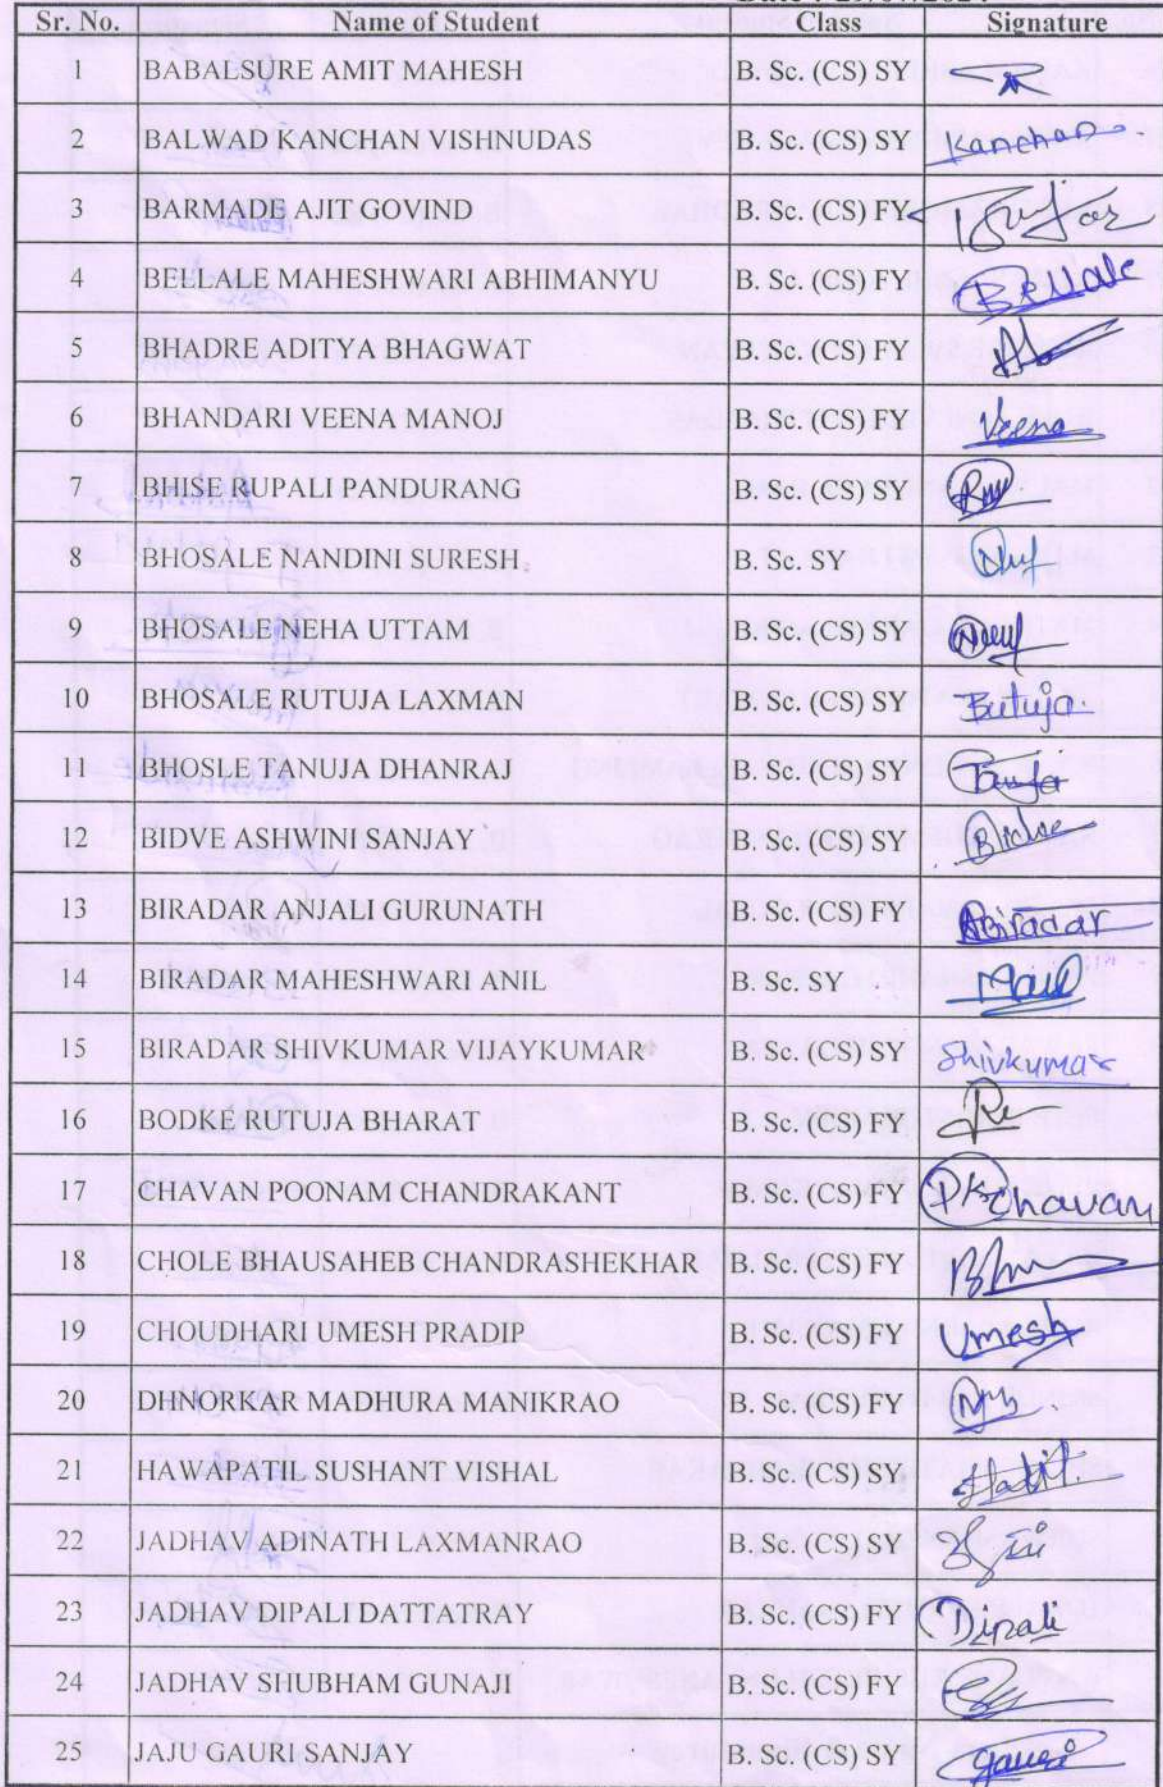 Sr. No. Name of Student Class Signature
1 BABALSURE AMIT MAHESH B. Sc. (CS) SY
2 BALWAD KANCHAN VISHNUDAS B. Sc. (CS) SY Kanchan
3 BARMADE AJIT GOVIND B. Sc. (CS) FY
4 BELLALE MAHESHWARI ABHIMANYU B. Sc. (CS) FY Bellale
5 BHADRE ADITYA BHAGWAT B. Sc. (CS) FY
6 BHANDARI VEENA MANOJ B. Sc. (CS) FY Veena
7 BHISE RUPALI PANDURANG B. Sc. (CS) SY
8 BHOSALE NANDINI SURESH B. Sc. SY
9 BHOSALE NEHA UTTAM B. Sc. (CS) SY
10 BHOSALE RUTUJA LAXMAN B. Sc. (CS) SY
11 BHOSLE TANUJA DHANRAJ B. Sc. (CS) SY
12 BIDVE ASHWINI SANJAY B. Sc. (CS) SY Bidve
13 BIRADAR ANJALI GURUNATH B. Sc. (CS) FY ABiradar
14 BIRADAR MAHESHWARI ANIL B. Sc. SY
15 BIRADAR SHIVKUMAR VIJAYKUMAR B. Sc. (CS) SY Shivkumar
16 BODKE RUTUJA BHARAT B. Sc. (CS) FY
17 CHAVAN POONAM CHANDRAKANT B. Sc. (CS) FY PKChavan
18 CHOLE BHAUSAHEB CHANDRASHEKHAR B. Sc. (CS) FY
19 CHOUDHARI UMESH PRADIP B. Sc. (CS) FY Umesh
20 DHNORKAR MADHURA MANIKRAO B. Sc. (CS) FY
21 HAWAPATIL SUSHANT VISHAL B. Sc. (CS) SY
22 JADHAV ADINATH LAXMANRAO B. Sc. (CS) SY
23 JADHAV DIPALI DATTATRAY B. Sc. (CS) FY Dipali
24 JADHAV SHUBHAM GUNAJI B. Sc. (CS) FY
25 JAJU GAURI SANJAY B. Sc. (CS) SY Gauri